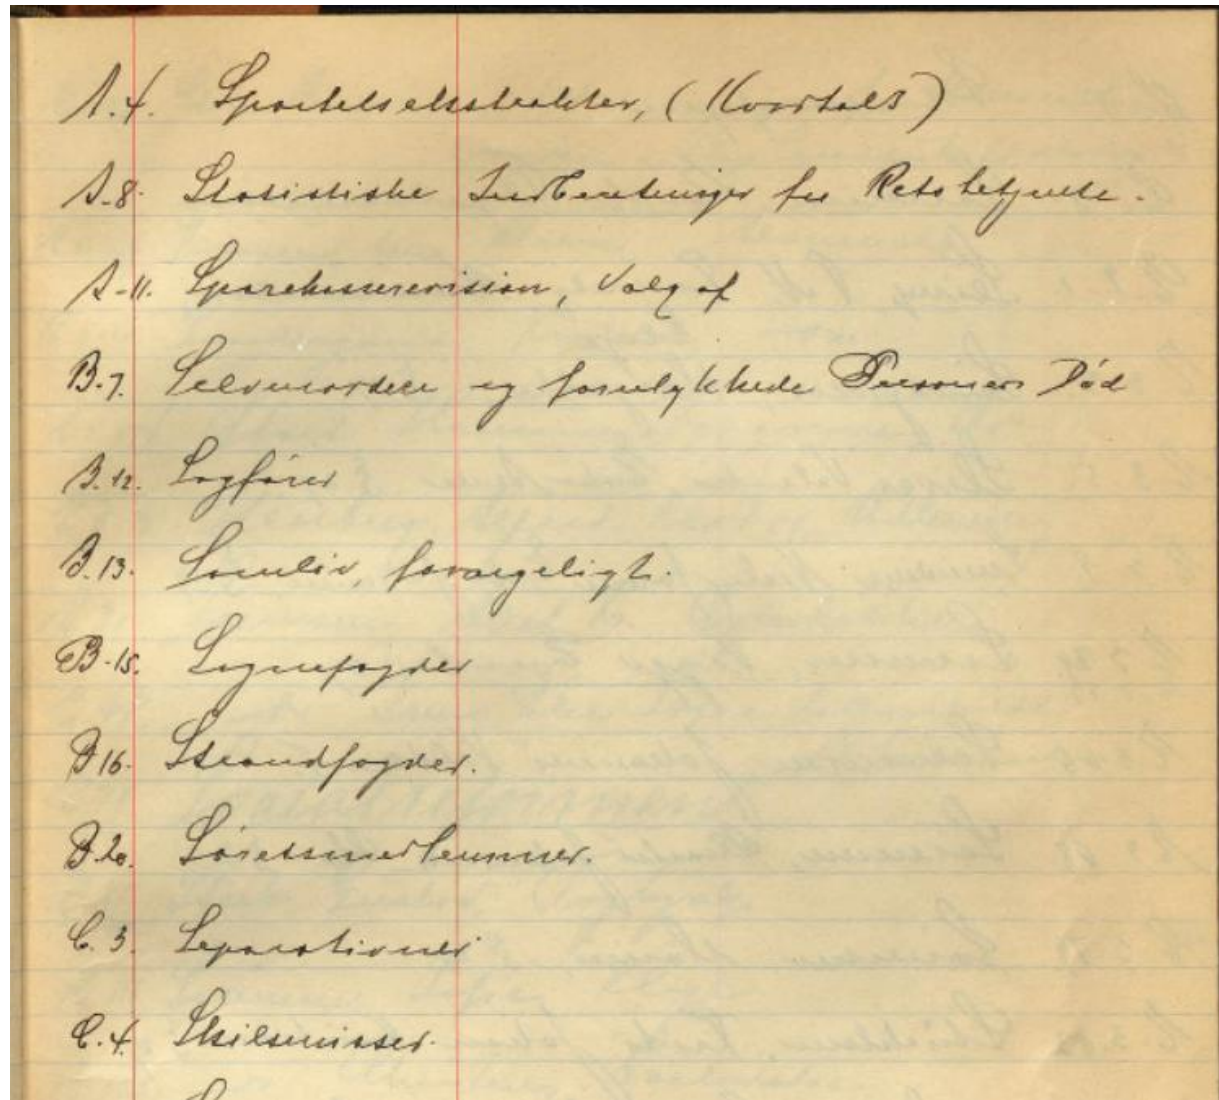 A.4. Sportelsekstrakter, (Kvartals)
A.8. Statistiske Indberetninger fra Retsbetjente.
A.11. Sparekasserevision, Valg af
B.7. Selvmordere og forulykkede Personers Død
B.12. Sagfører
B.13. Samliv, forargeligt.
B.15. Sognefogder
B.16. Strandfogder.
B.20. Søretsmedlemmer.
C.3. Separationer
C.4. Skilsmisser.